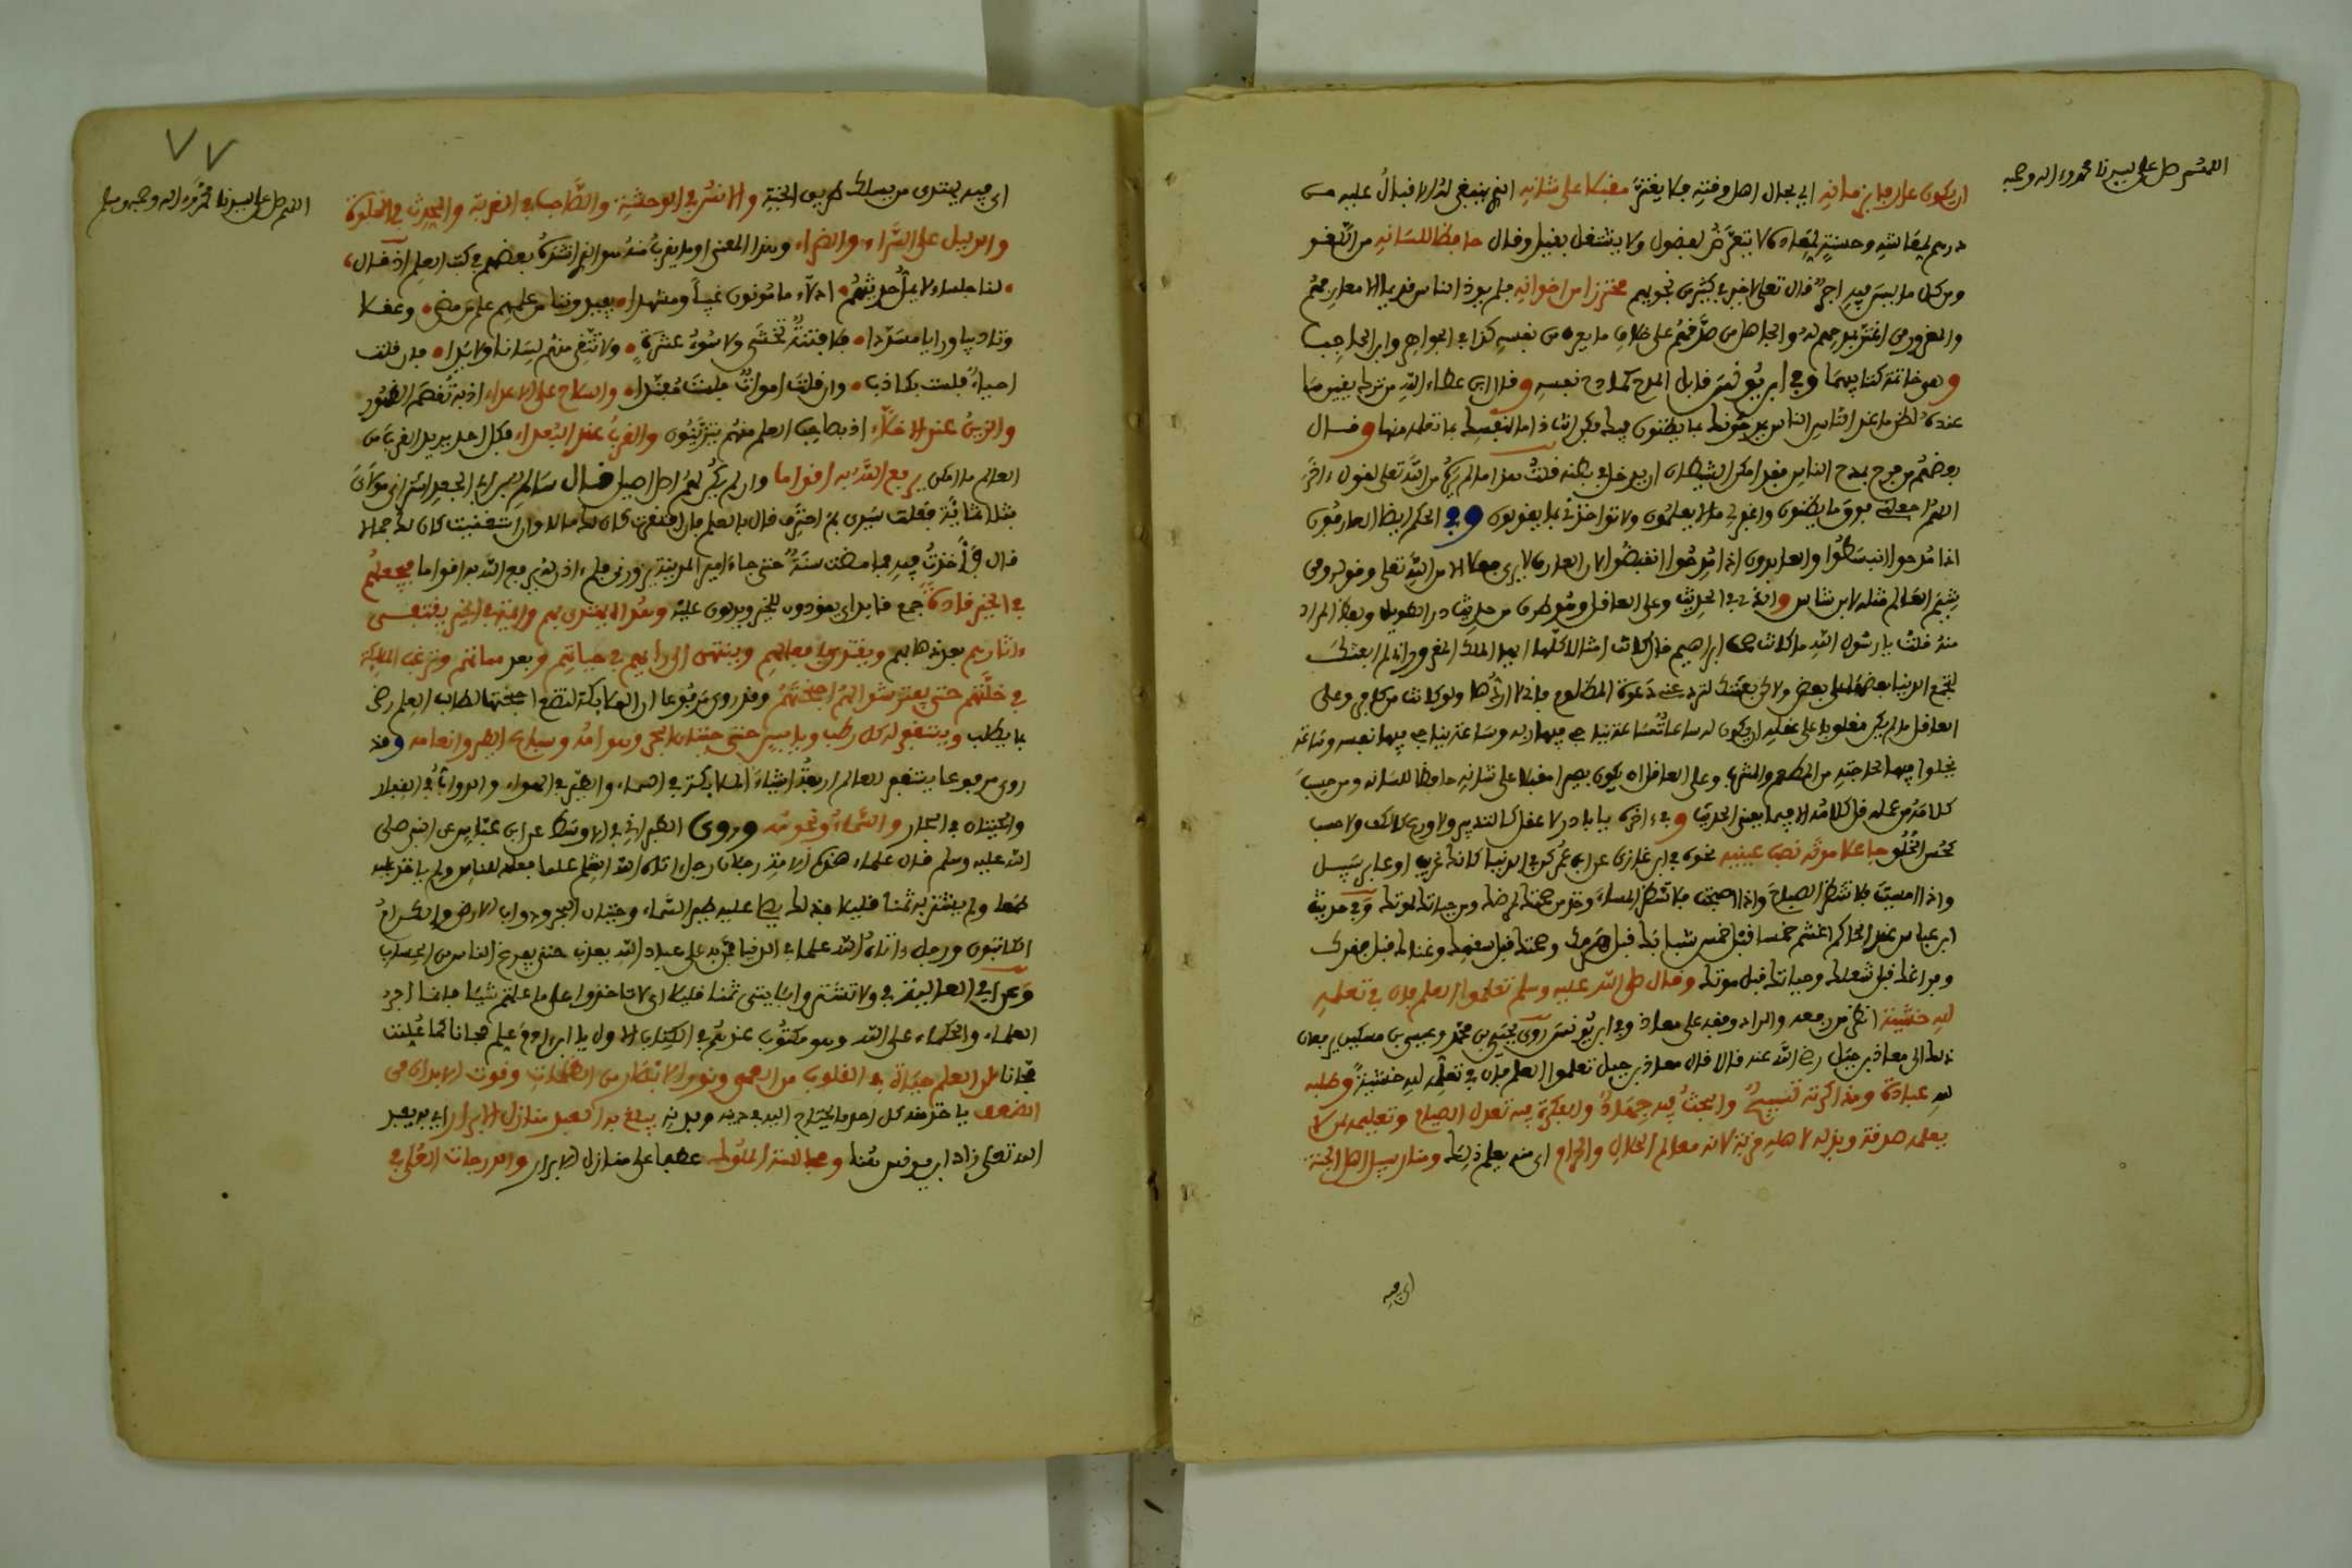 اللهم صل على سيدنا محمد وءاله وصحبه
ان يكون عارفا بزمانه اي بحال اهل وقته فلا يغتر مقبلا على شانه اي ينبغي له الاقبال عليه من
درهم لمعاشه وحسنة لمعاده لا يتعرض لفضول ولا يشتغل بغيبة وقال حافظا للسانه من اللغو
ومن كل ما ليس فيه اجر قال تعلى لا خير في كثير من نجويهم محترزا من اخوانه فلم يوذ الناس قديما الا معارفهم
والمغرور من اغتر بمدحهم له والجاهل من صدقهم على خلاف ما يعرف من نفسه كذا في الجواهر وابن الحاجب
وهو خاتمة كتابيهما وفي ابن يونس قابل المدح كمادح نفسه وقال ابن عطاء الله من ترك يقين ما
عنده لظن ما عند الناس الناس يمدحونك بما يظنون فيك فكن انت ذاما لنفسك بما تعلمه منها وقال
بعضهم من فرح بمدح الناس فقد امكن الشيطان ان يدخل في بطنه قلت هذا ما لم يكن من الله تعلى لقول ءاخر
اللهم اجعلني فوق ما يظنون واغفر لي ما لا يعلمون ولا تواخذني بما يقولون وفي الحكم ايضا العارفون
اذا مدحوا انبسطوا والعابدون اذا مدحوا انقبضوا لان العارف لا يرى فعلا الا من الله تعلى وقوله ومن
شيم العالم مثله لابن شاس والذي في الحديث وعلى العاقل وهو طرف من حديث ابي ذر الطويل وبعض المراد
منه قلت يا رسول الله ما كانت صحف ابراهيم قال كانت امثالا كلها ايها الملك المغرور اني لم ابعثك
لتجمع الدنيا بعضها على بعض ولاكن بعثتك لترد عني دعوة المظلوم فاني لا اردها ولو كانت من كافر وعلى
العاقل ما لم يكن مغلوبا على عقله ان يكون له ساعات ساعة يناجي فيها ربه وساعة يحاسب فيها نفسه وساعة
يخلوا فيها لحاجته من المطعم والمشرب وعلى العاقل ان يكون بصيرا مقبلا على شانه حافظا للسانه ومن حسب
كلامه من عمله قل كلامه الا فيما يعني الحديث وفي ءاخره يا با ذر لا عقل كالتدبير ولا ورع كالكف ولا حسب
كحسن الخلق جاعلا موته نصب عينيه نحوه في ابن غازي عن ابن عمر كن في الدنيا كانك غريب او عابر سبيل
واذا امسيت فلا تنتظر الصباح واذا اصبحت فلا تنتظر المساء وخذ من صحتك لمرضك ومن حياتك لموتك وفي حديث
ابن عباس عند الحاكم اغتنم خمسا قبل خمس شبابك قبل هرمك وصحتك قبل سقمك وغناك قبل فقرك
وفراغك قبل شغلك وحياتك قبل موتك وقال صلى الله عليه وسلم تعلموا العلم فان في تعلمه
لله خشية انظر من رفعه والمراد وقفه على معاذ وفي ابن يونس روى يحيى بن محمد وعيسى بن مسكين يرفعان
ذلك الى معاذ بن جبل رضي الله عنه قالا قال معاذ بن جبل تعلموا العلم فان في تعلمه لله خشية وطلبه
لله عبادة ومذاكرته تسبيح والبحث فيه جهاد والفكرة فيه تعدل الصيام وتعليمه لمن لا
يعلمه صدقة وبذله لاهله قربة لانه معالم الحلال والحرام اي منه يعلم ذلك ومنار سبيل اهل الجنة
اي فيه
٧٧
اللهم صل على سيدنا محمد وءاله وصحبه وسلم
اي فيه يهتدي من يسلك طريق الجنة والانس في الوحشة والصاحب في الغربة والمحدث في الخلوة
والدليل على السراء والضراء وبهذا المعنى او ما يقرب منه هو الذي انشد بعضهم في كتب العلم اذ قال
لنا جلساء لا نمل حديثهم الاء مامونون غيبا ومشهدا يفيدوننا من علمهم علم من مضى وعقلا
وتاديبا ورايا مسددا فلا فتنة تخشى ولا سوء عشرة ولا نتقي منهم لسانا ولا يدا فان قلت
احياء فلست بكاذب وان قلت اموات فلست مفندا والسلاح على الاعداء اذ به تقصم الظهور
والزين عند الاخلاء اذ بطالب العلم منهم يتزينون والقرب عند البعداء فكل احد يريد القرب من
العالم ما امكن يرفع الله به اقواما وان لم يكن لهم اصل اصيل قال سالم بن ابي الجعد اشتراني مولاي
بثلاثمائة فقلت سيدي بم احترف قال بالعلم فان افتقرت كان لك مالا وان استغنيت كان لك جمالا
قال فاخذت فيه فما مضت سنة حتى جاء امير المدينة يزورني فلم ءاذن له يرفع الله به اقواما فيجعلهم
في الخير قادة جمع قائد اي يقودون للخير ويدلون عليه وهداة يهتدى بهم وايمة في الخير يقتفى
ءاثارهم بعد ذهابهم ويقتدى بفعالهم وينتهى الى رايهم في حياتهم وبعد مماتهم وترغب الملائكة
في خلتهم حتى يفترشوا لهم اجنحتهم وقد روى مرفوعا ان الملائكة لتضع اجنحتها لطالب العلم رضى
بما يطلب ويستغفر له كل رطب ويابس حتى حيتان البحر وهوامه وسباع البر وانعامه وقد
روى مرفوعا يستغفر للعالم اربعة اشياء الملائكة في السماء والطير في الهواء والدواب في القفار
والحيتان في البحار والسماء ونجومه وروى الطبراني في الاوسط عن ابن عباس عن النبي صلى
الله عليه وسلم قال علماء هذه الامة رجلان رجل ءاتاه الله العلم علما فعلمه للناس ولم ياخذ عليه
طمعا ولم يشتر به ثمنا قليلا فذلك يصلي عليه طير السماء وحيتان البحر ودواب الارض والكرام
الكاتبون ورجل ءاتاه الله علما في الدنيا فضن به على عباد الله يعذب حتى يفرغ الناس من الحساب
وعن ابي العالية في ولا تشتروا باياتي ثمنا قليلا اي لا تاخذوا على ما علمتم شيئا فانما اجر
العلماء والحكماء على الله وهو مكتوب عندهم في الكتاب الاول يا ابن ءادم علم مجانا كما علمت
مجانا لان العلم حياة في القلوب من العمى ونور الابصار من الظلمات وقوت الابدان من
الضعف ياخذ منه كل احد ما يحتاج اليه في دينه وبدنه يبلغ به العبد منازل الابرار اي يريد
الله تعلى زاد ابن يونس هنا ومجالسة الملوك عطفا على منازل الابرار والدرجات العلى في